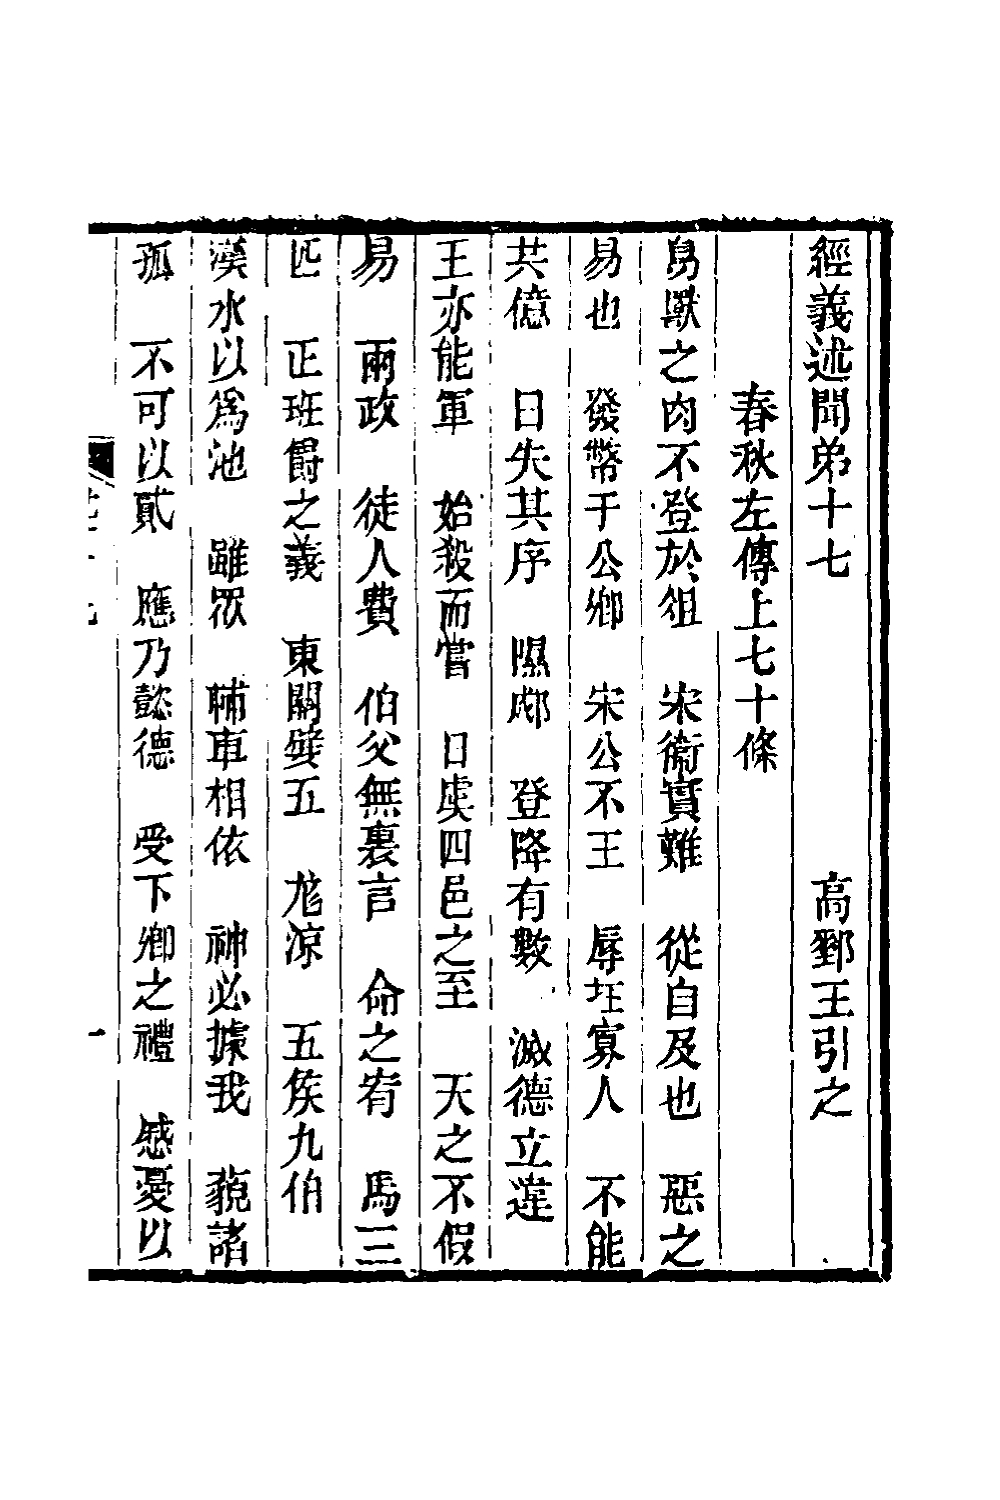 經義述聞弟十七　高郵王引之
春秋左傳上七十條
鳥獸之肉不登於俎　宋衞實難　從自及也　惡之
易也　發幣于公卿　宋公不王　辱在寡人　不能
共億　日失其序　隰郕　登降有數　滅德立違
王亦能軍　始殺而嘗　日虞四邑之至　天之不假
易　兩政　徒人費　伯父無裏言　命之宥　馬三
匹　正班爵之義　東關嬖五　尨涼　五矦九伯
漢水以爲池　雖眾　輔車相依　神必據我　藐諸
孤　不可以貳　應乃懿德　受下卿之禮　感憂以
一